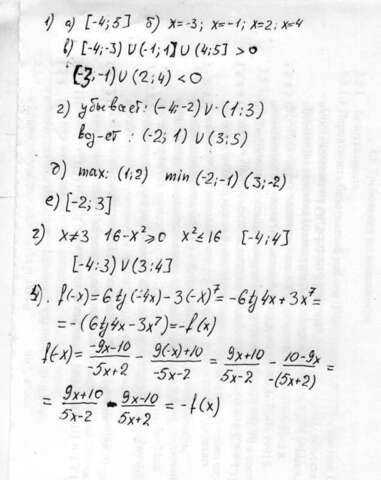 1) а) [-4; 5] б) x=-3; x=-1; x=2; x=4
в) [-4;-3) ∪ (-1; 1] ∪ (4; 5] > 0
(-3;-1) ∪ (2; 4) < 0
г) убывает: (-4;-2) ∪ (1; 3)
воз-ет : (-2; 1) ∪ (3; 5)
д) max: (1; 2) min (-2;-1) (3;-2)
е) [-2; 3]
2) x≠3 16-x²≥0 x²≤16 [-4; 4]
[-4; 3) ∪ (3; 4]
3). f(-x)=6tg(-4x)-3(-x)⁷=-6tg4x+3x⁷=
=-(6tg4x-3x⁷)=-f(x)
f(-x)= (-9x-10)/(-5x+2) - (9(-x)+10)/(-5x-2) = (9x+10)/(5x-2) - (10-9x)/(-(5x+2)) =
= (9x+10)/(5x-2) - (9x-10)/(5x+2) = -f(x)